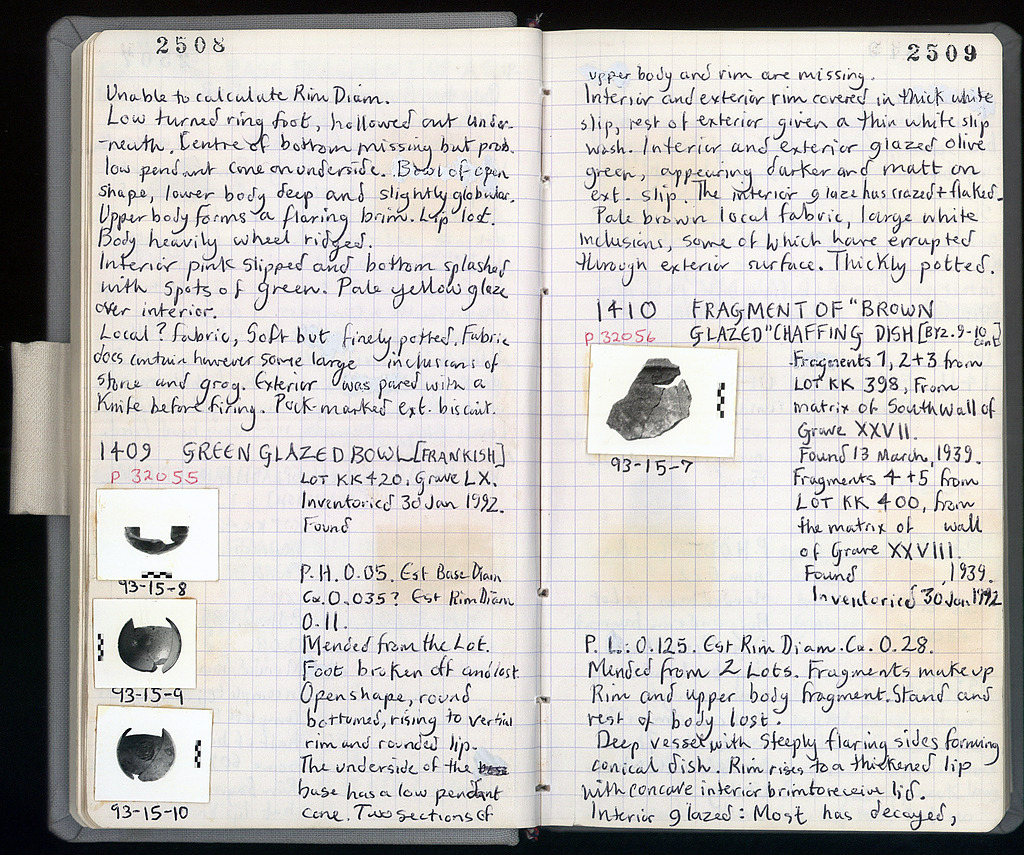 2508
Unable to calculate Rim Diam.
Low turned ring foot, hollowed out under-
-neath. Centre of bottom missing but prob.
low pendant cone on underside. Bowl of open
shape, lower body deep and slightly globular.
Upper body forms a flaring brim. Lip lost.
Body heavily wheel ridged.
Interior pink slipped and bottom splashed
with spots of green. Pale yellow glaze
over interior.
Local? fabric, Soft but finely potted. Fabric
does contain however some large inclusions of
stone and grog. Exterior was pared with a
Knife before firing. Pock-marked ext. biscuit.
1409 GREEN GLAZED BOWL [FRANKISH]
P 32055
LOT KK 420. Grave LX.
Inventoried 30 Jan 1992.
Found
93-15-8
P.H. 0.05. Est Base Diam
Ca. 0.035? Est Rim Diam
0.11.
Mended from the Lot.
Foot broken off and lost
93-15-9
Open shape, round
bottomed, rising to vertical
rim and rounded lip.
The underside of the base
base has a low pendant
cone. Two sections of
93-15-10
2509
upper body and rim are missing.
Interior and exterior rim covered in thick white
slip, rest of exterior given a thin white slip
wash. Interior and exterior glazed olive
green, appearing darker and matt on
ext. slip. The interior glaze has crazed + flaked.
Pale brown local fabric, large white
inclusions, some of which have errupted
through exterior surface. Thickly potted.
1410 FRAGMENT OF "BROWN
GLAZED" CHAFFING DISH [BYZ. 9-10 cent]
P 32056
Fragments 1, 2 + 3 from
LOT KK 398, From
matrix of South wall of
Grave XXVII.
Found 13 March, 1939.
93-15-7
Fragments 4 + 5 from
LOT KK 400, from
the matrix of wall
of Grave XXVIII.
Found , 1939.
Inventoried 30 Jan 1992
P. L. 0.125. Est Rim Diam. Ca. 0.28.
Mended from 2 Lots. Fragments make up
Rim and upper body fragment. Stand and
rest of body lost.
Deep vessel with steeply flaring sides forming
conical dish. Rim rises to a thickened lip
with concave interior brim to receive lid.
Interior glazed: Most has decayed,